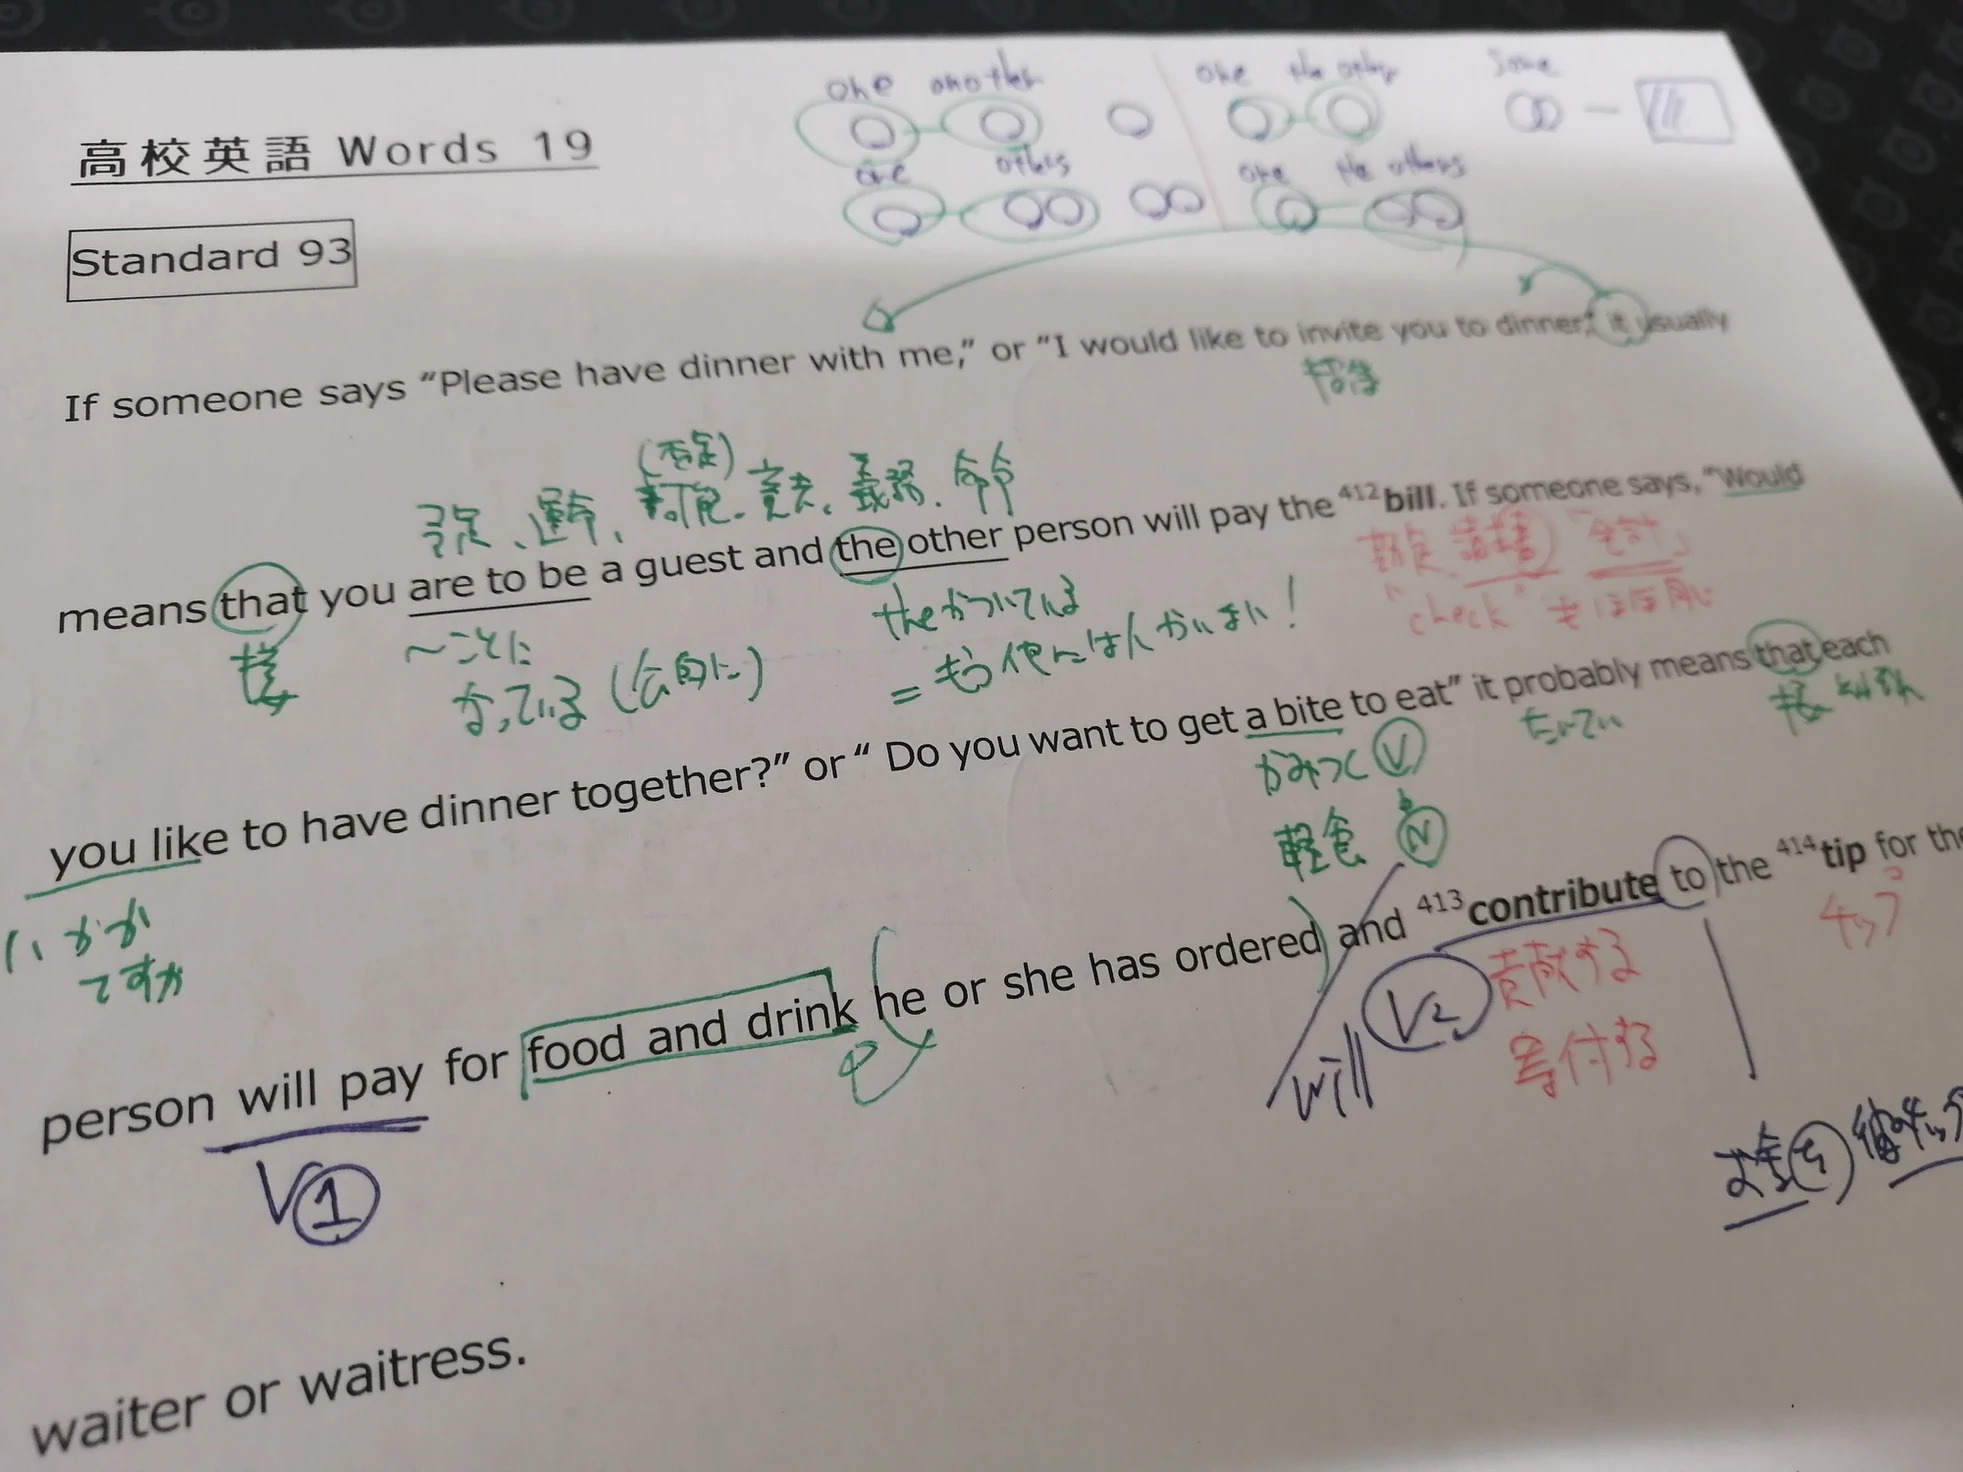 one another one the other Some
高校英語 Words 19
one others one the others
Standard 93
If someone says “Please have dinner with me,” or “I would like to invite you to dinner,” it usually
招待
(否定)
予定、運命、可能、意志、義務、命令
means that you are to be a guest and the other person will pay the ⁴¹²bill. If someone says, “Would
勘定 請書 「会計」
theがついている
“check” もほぼ同じ
〜ことに
接
なっている (公的に)
= もう他にはんかいまい!
you like to have dinner together?” or “ Do you want to get a bite to eat” it probably means that each
たいてい
接
かみつく V
軽食 N
いかが
ですか
person will pay for food and drink he or she has ordered and ⁴¹³contribute to the ⁴¹⁴tip for the
チップ
貢献する
will V2
寄付する
V①
waiter or waitress.